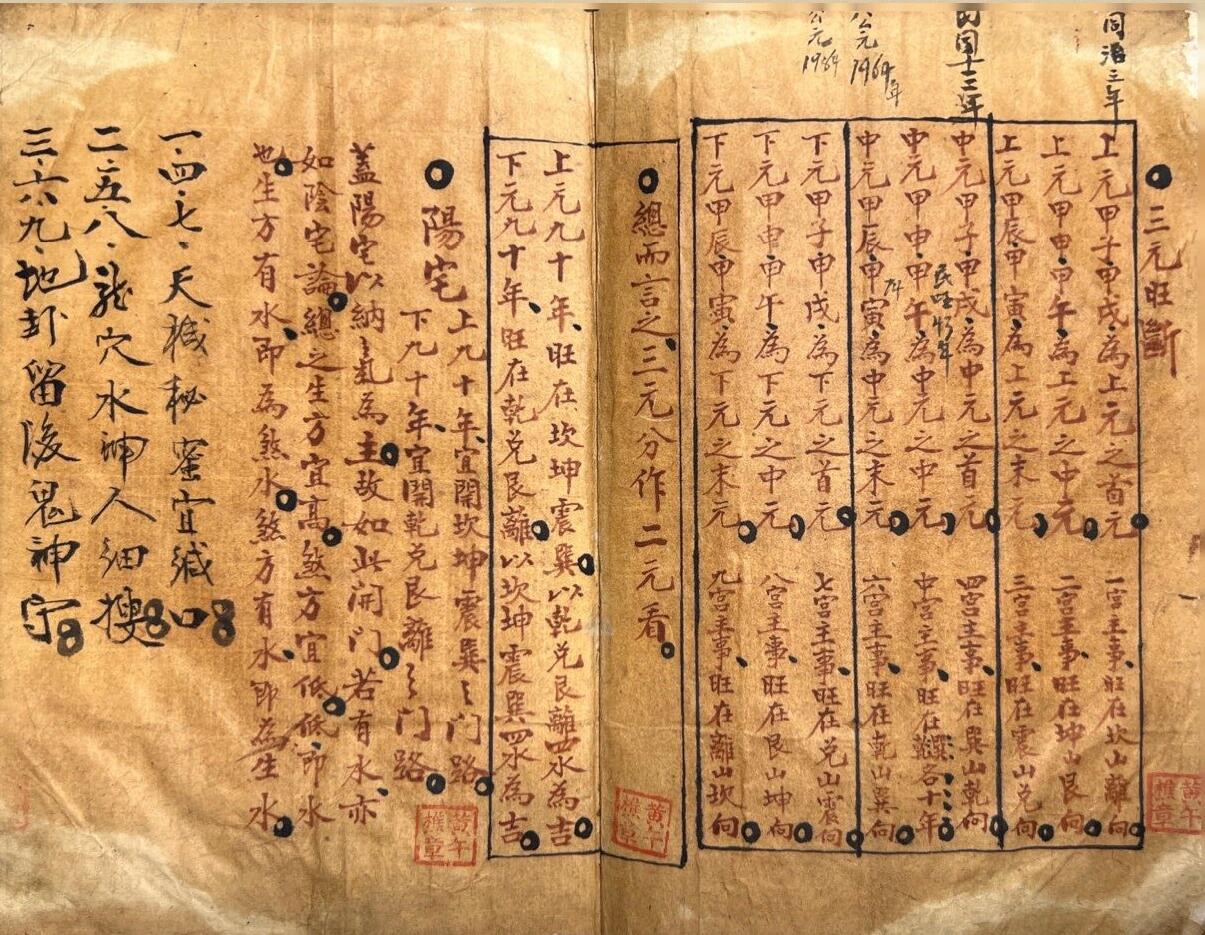 同治三年
民國十三年
公元1964年
公元1984
三元旺斷
上元甲子甲戌為上元之首元 一宮主事旺在坎山離向
上元甲申甲午為上元之中元 二宮主事旺在坤山艮向
上元甲辰甲寅為上元之末元 三宮主事旺在震山兌向
中元甲子甲戌為中元之首元 四宮主事旺在巽山乾向
民國43年
中元甲申甲午為中元之中元 中宮主事旺在乾巽各十年
74
中元甲辰甲寅為中元之末元 六宮主事旺在乾山巽向
下元甲子甲戌為下元之首元 七宮主事旺在兌山震向
下元甲申甲午為下元之中元 八宮主事旺在艮山坤向
下元甲辰甲寅為下元之末元 九宮主事旺在離山坎向
總而言之三元分作二元看
上元九十年旺在坎坤震巽以乾兌艮離四水為吉
下元九十年旺在乾兌艮離以坎坤震巽四水為吉
陽宅
上九十年宜開坎坤震巽之門路
下九十年宜開乾兌艮離之門路
蓋陽宅以納氣為主故如此開門若有水亦
如陰宅論總之生方宜高煞方宜低低即水
也生方有水即為煞水煞方有水即為生水
一四七天機秘蜜宜緘口
二五八龍穴水神人細搜
三六九地卦留後鬼神守
黃午樵章
黃午樵章
黃午樵章